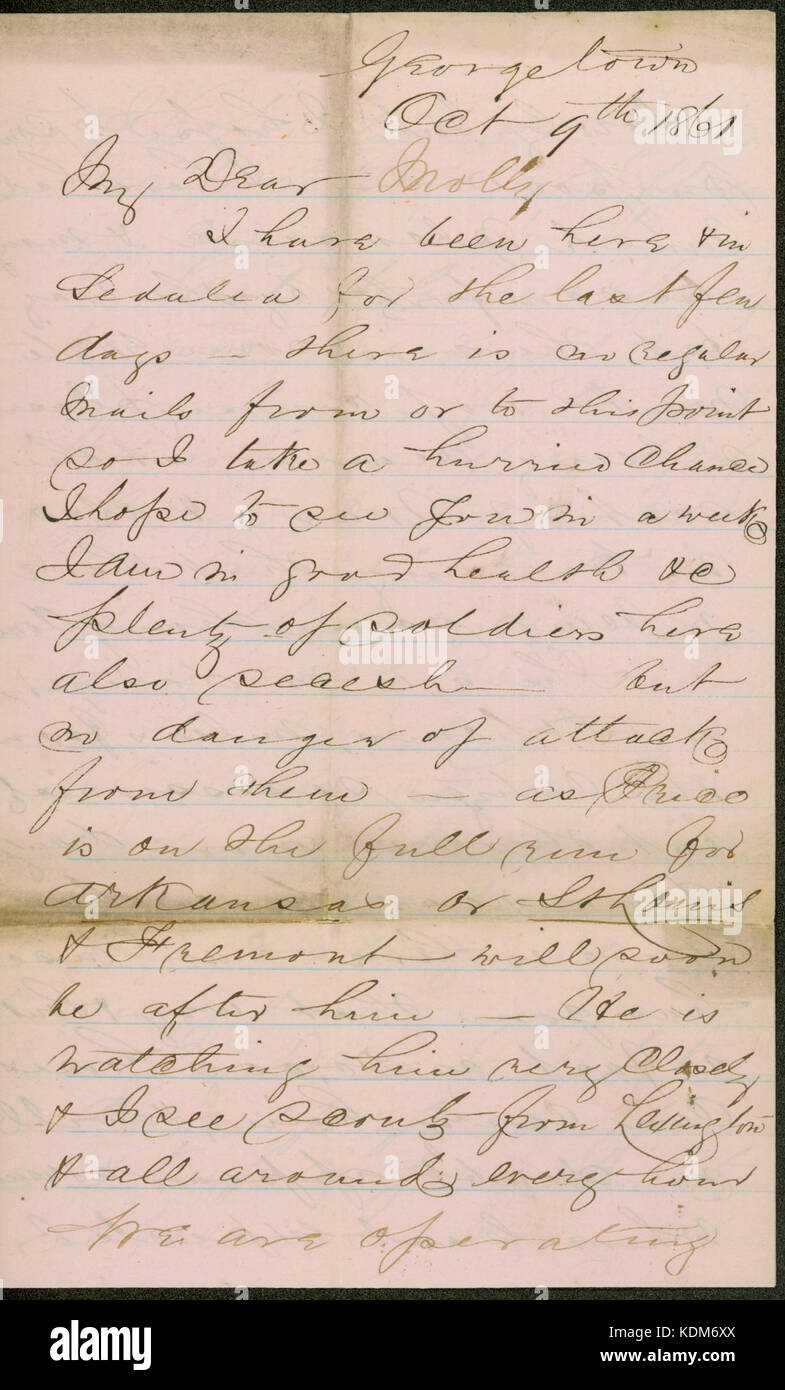 Georgetown
Oct 9th 1861
My Dear Molly
I have been here & in
Sedalia for the last few
days — there is no regular
mails from or to this point
so I take a hurried chance
I hope to see you in a week
I am in good health &c
plenty of soldiers here
also secesh — but
no danger of attack
from them — as Price
is on the full run for
Arkansas or St Louis
& Fremont will soon
be after him — He is
watching him very closely
& I see scouts from Lexington
& all around every hour
We are operating
alamy
Image ID: KDM6XX
www.alamy.com